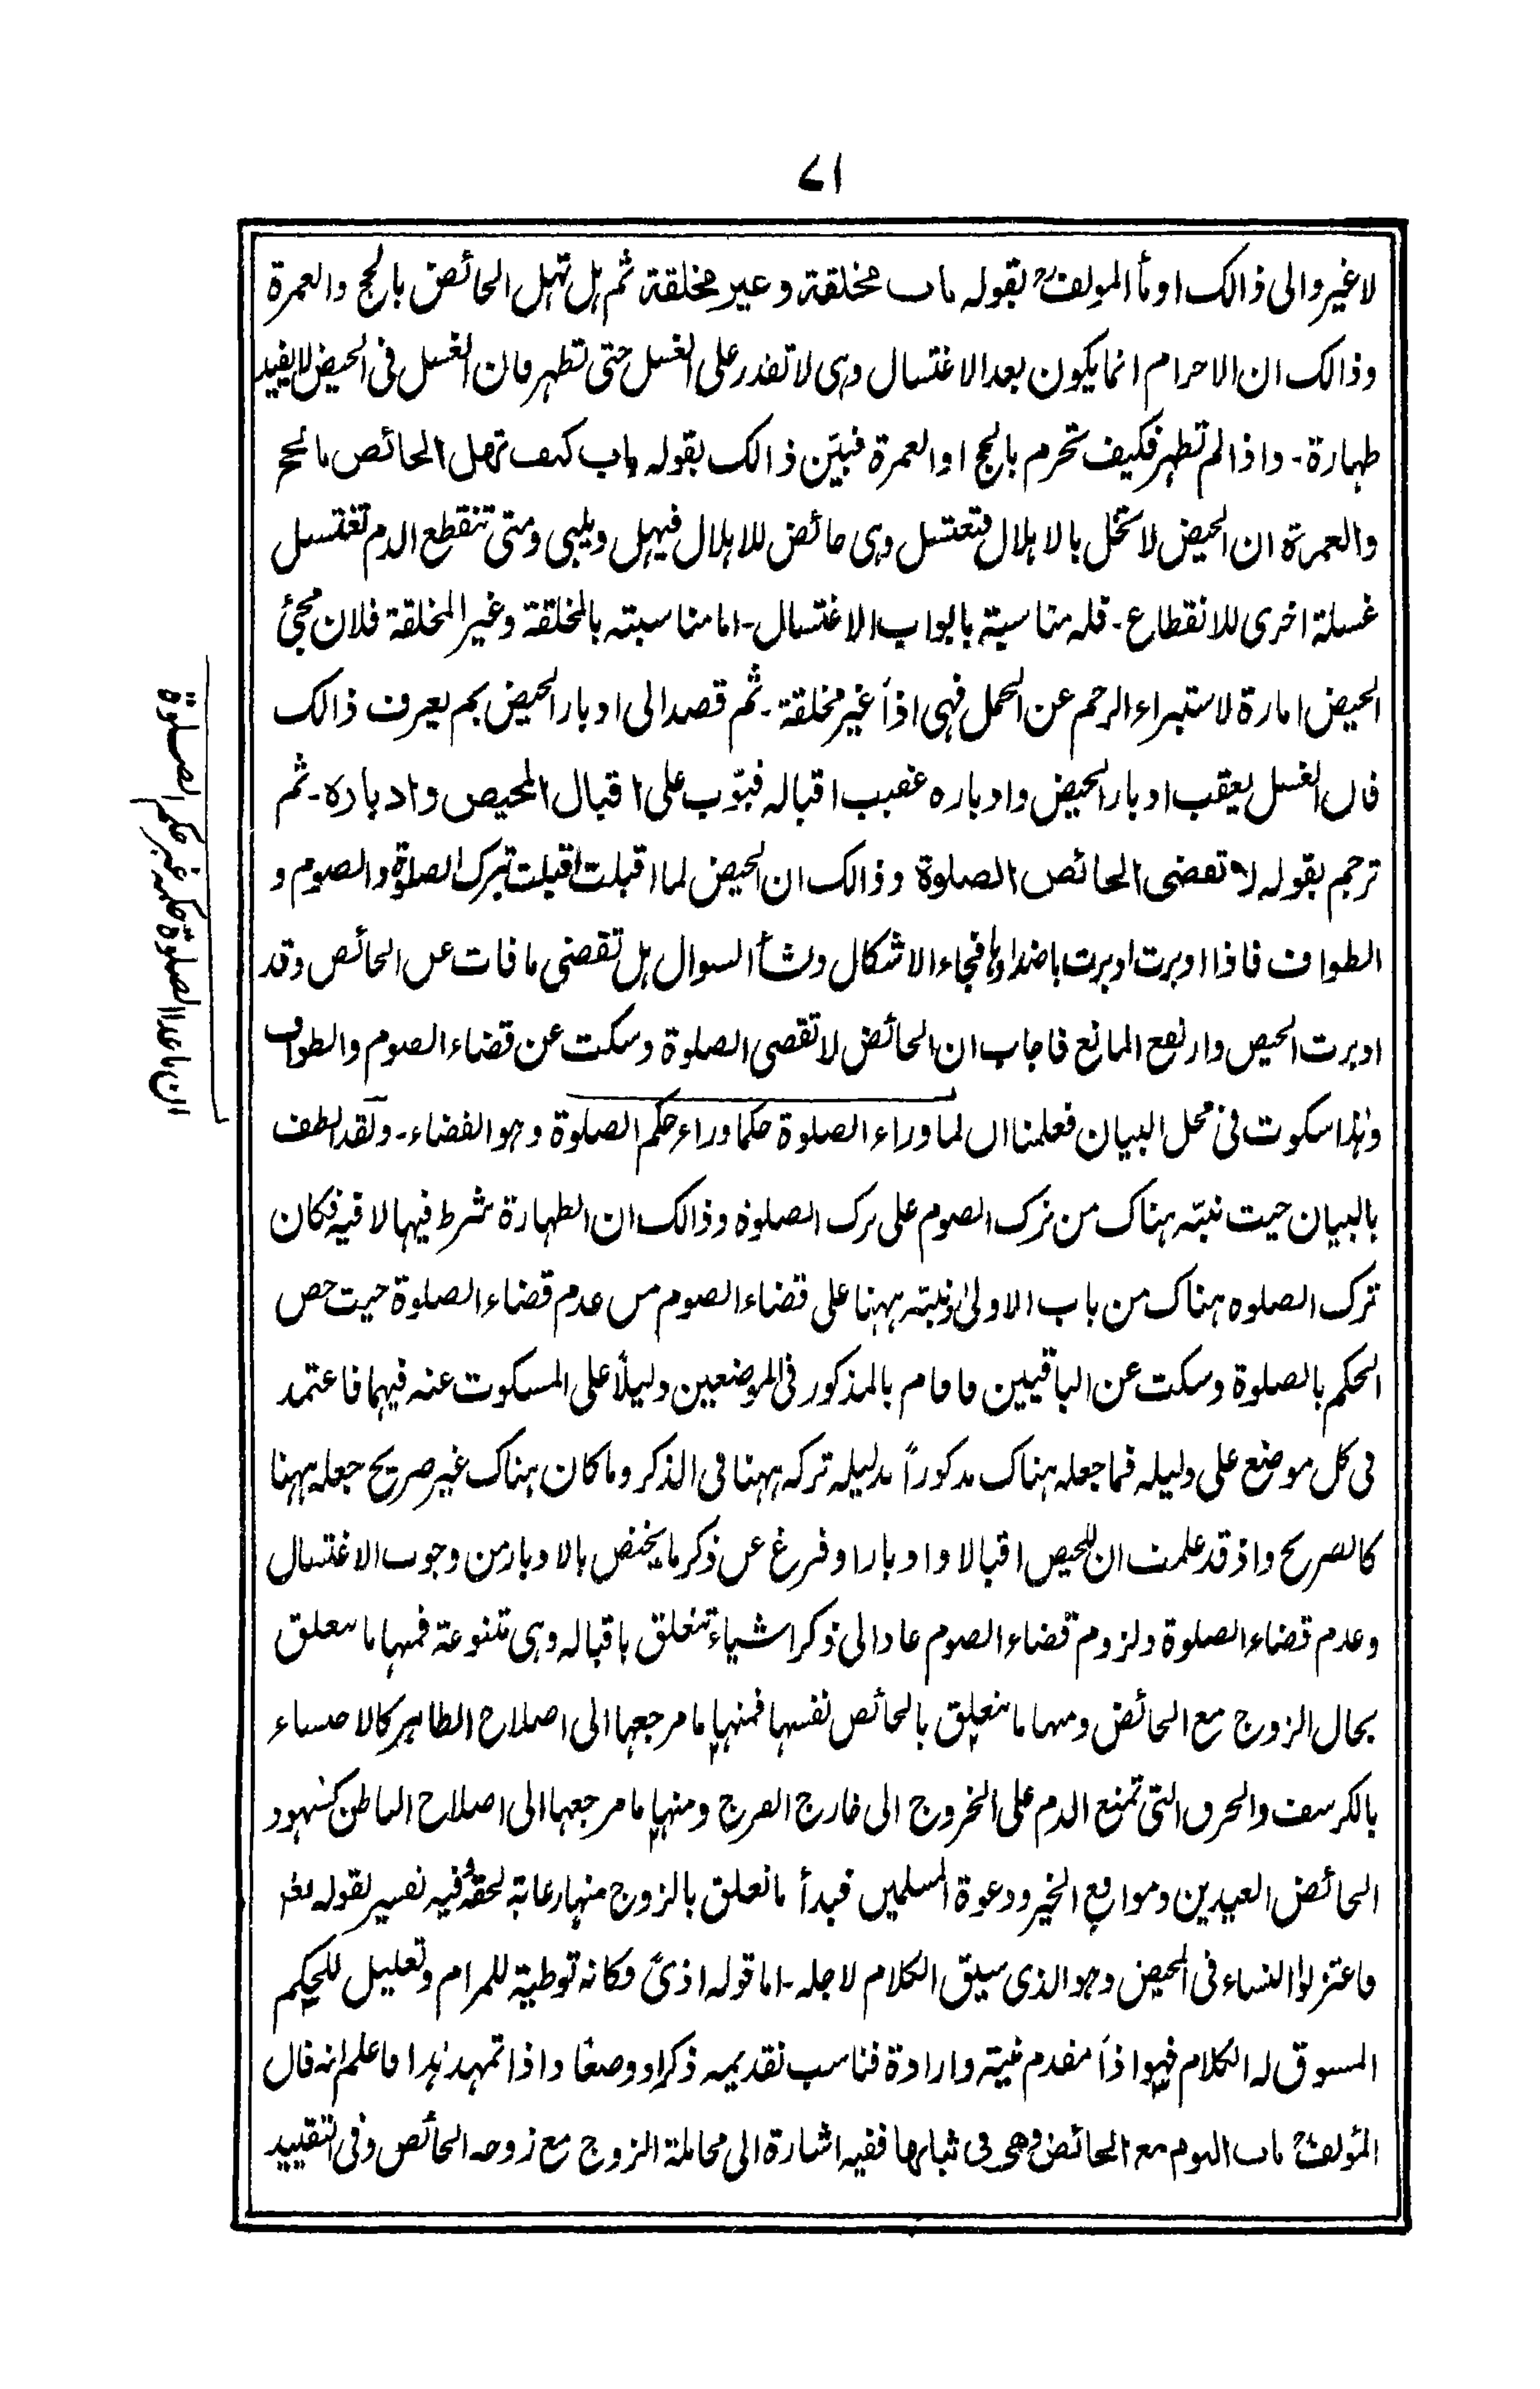 ۷۱
لا غیر والی ذالک اومأ المولفؒ بقولہ باب مخلقة وغیر مخلقة ثم ہل تہل الحائض بالحج والعمرة
وذالک ان الاحرام انما یکون بعد الاغتسال وہی لا تقدر علی الغسل حتی تطہر فان الغسل فی الحیض لا یفید
طہارة۔ واذا لم تطہر فکیف تحرم بالحج او العمرة فبیّن ذالک بقولہ باب کیف تھل الحائض بالحج
والعمرة ان الحیض لا تخل بالاہلال فتغتسل وہی حائض للاہلال فیہل ویلبی ومتی تنقطع الدم تغتسل
غسلة اخری للانقطاع۔ فلہ مناسبة بابواب الاغتسال۔ اما مناسبتہ بالمخلقة وغیر المخلقة فلان مجئ
الحیض امارة لاستبراء الرحم عن الحمل فہی اذاً غیر مخلقة۔ ثم قصد الی ادبار الحیض بم یعرف ذالک
فان الغسل یعقب ادبار الحیض وادبارہ عقیب اقبالہ فبوّب علی اقبال المحیض وادبارہ۔ ثم
ترجم بقولہ لا تقضی الحائض الصلوة وذالک ان الحیض لما اقبلت اقبلت بترک الصلوة والصوم و
الطواف فاذا ادبرت ادبرت باضدادہا فجاء الاشکال ونشأ السوال ہل تقضی ما فات عن الحائض وقد
ادبرت الحیض وارتفع المانع فاجاب ان الحائض لا تقضی الصلوة وسکت عن قضاء الصوم والطواف
وہذا سکوت فی محل البیان فعلمنا ان لما وراء الصلوة حکما وراء حکم الصلوة وہو القضاء۔ ولقد لطف
بالبیان حیث نبّہ ہناک من ترک الصوم علی ترک الصلوة وذالک ان الطہارة شرط فیہا لا فیہ فکان
ترک الصلوہ ہناک من باب الاولیٰ ونبّہ ہہنا علی قضاء الصوم من عدم قضاء الصلوة حیث خص
الحکم بالصلوة وسکت عن الباقیین فاقام بالمذکور فی الموضعین دلیلاً علی المسکوت عنہ فیہما فاعتمد
فی کل موضع علی دلیلہ فما جعلہ ہناک مذکوراً بدلیلہ ترکہ ہہنا فی الذکر وما کان ہناک غیر صریح جعلہ ہہنا
کالصریح واذ قد علمت ان للحیض اقبالا وادبارا وفرغ عن ذکر ما یختص بالادبار من وجوب الاغتسال
وعدم قضاء الصلوة ولزوم قضاء الصوم عاد الی ذکر اشیاء تتعلق باقبالہ وہی متنوعة فمنہا ما یتعلق
بحال الزوج مع الحائض ومنہا ما یتعلق بالحائض نفسہا فمنہا ما مرجعہا الی اصلاح الظاہر کالاحتشاء
بالکرسف والخرق التی تمنع الدم علی الخروج الی خارج الفرج ومنہا ما مرجعہا الی اصلاح الباطن کشہود
الحائض العیدین ومواقع الخیر ودعوة المسلمین فبدأ ما تعلق بالزوج منہا رعایة لحقہ فیہ تفسیر لقولہ تعٰ
فاعتزلوا النساء فی المحیض وہو الذی سیق الکلام لاجلہ۔ اما قولہ اذیً فکانہ توطیة للمرام وتعلیل للحکم
المسوق لہ الکلام فہو اذاً مقدم نیة وارادة فناسب تقدیمہ ذکراً ووضعًا واذا تمہد ہذا فاعلم انہ قال
المؤلفؒ باب النوم مع الحائض وھی فی ثیابھا ففیہ اشارة الی مجاملة الزوج مع زوجہ الحائض وفی التقیید
ان ما عدا الصلوة حکمہ غیر حکم الصلوة